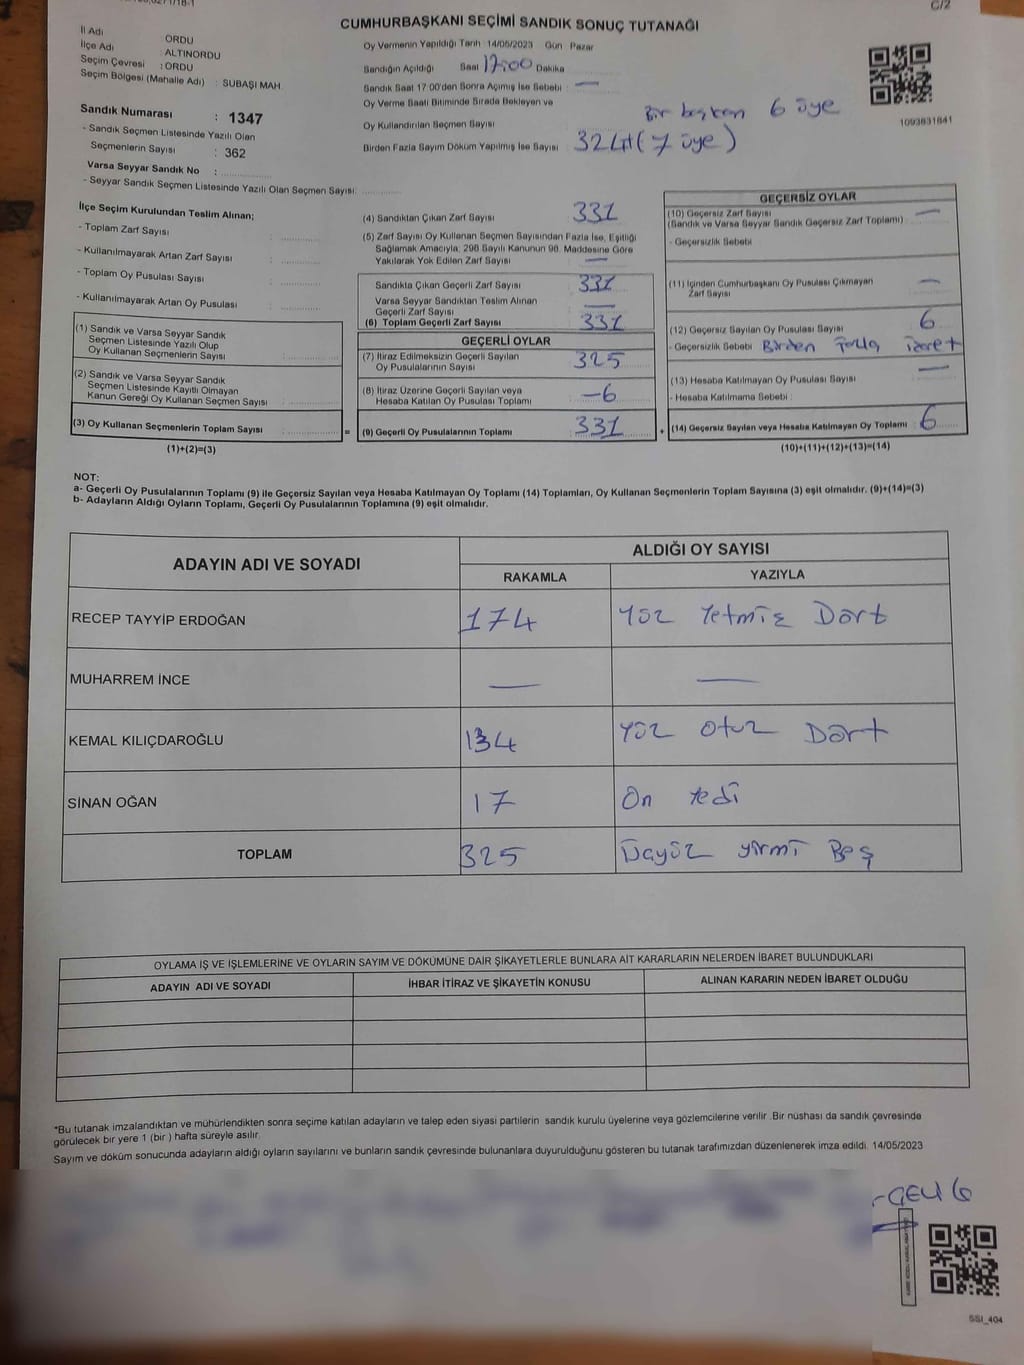 C/2
CUMHURBAŞKANI SEÇİMİ SANDIK SONUÇ TUTANAĞI
İl Adı : ORDU
İlçe Adı : ALTINORDU
Seçim Çevresi : ORDU
Seçim Bölgesi (Mahalle Adı) : SUBAŞI MAH.
Sandık Numarası : 1347
- Sandık Seçmen Listesinde Yazılı Olan
Seçmenlerin Sayısı : 362
Varsa Seyyar Sandık No :
- Seyyar Sandık Seçmen Listesinde Yazılı Olan Seçmen Sayısı:
Oy Vermenin Yapıldığı Tarih 14/05/2023 Gün Pazar
Sandığın Açıldığı Saat 17:00 Dakika
Sandık Saat 17:00'den Sonra Açılmış İse Sebebi : —
Oy Verme Saati Bitiminde Sırada Bekleyen ve
Oy Kullandırılan Seçmen Sayısı
Bir başkan 6 üye
Birden Fazla Sayım Döküm Yapılmış İse Sayısı 324+(7 üye)
1093631841
İlçe Seçim Kurulundan Teslim Alınan;
- Toplam Zarf Sayısı :
- Kullanılmayarak Artan Zarf Sayısı :
- Toplam Oy Pusulası Sayısı :
- Kullanılmayarak Artan Oy Pusulası :
(1) Sandık ve Varsa Seyyar Sandık
Seçmen Listesinde Yazılı Olup
Oy Kullanan Seçmenlerin Sayısı :
(2) Sandık ve Varsa Seyyar Sandık
Seçmen Listesinde Kayıtlı Olmayan
Kanun Gereği Oy Kullanan Seçmen Sayısı :
(3) Oy Kullanan Seçmenlerin Toplam Sayısı : =
(1)+(2)=(3)
(4) Sandıktan Çıkan Zarf Sayısı 331
(5) Zarf Sayısı Oy Kullanan Seçmen Sayısından Fazla İse, Eşitliği
Sağlamak Amacıyla; 298 Sayılı Kanunun 98. Maddesine Göre
Yakılarak Yok Edilen Zarf Sayısı —
Sandıkta Çıkan Geçerli Zarf Sayısı 331
Varsa Seyyar Sandıktan Teslim Alınan
Geçerli Zarf Sayısı —
(6) Toplam Geçerli Zarf Sayısı 331
GEÇERLİ OYLAR
(7) İtiraz Edilmeksizin Geçerli Sayılan
Oy Pusulalarının Sayısı 325
(8) İtiraz Üzerine Geçerli Sayılan veya
Hesaba Katılan Oy Pusulası Toplamı -6
(9) Geçerli Oy Pusulalarının Toplamı 331 +
GEÇERSİZ OYLAR
(10) Geçersiz Zarf Sayısı —
(Sandık ve Varsa Seyyar Sandık Geçersiz Zarf Toplamı)
- Geçersizlik Sebebi
(11) İçinden Cumhurbaşkanı Oy Pusulası Çıkmayan —
Zarf Sayısı
(12) Geçersiz Sayılan Oy Pusulası Sayısı 6
- Geçersizlik Sebebi Birden Fazla
(13) Hesaba Katılmayan Oy Pusulası Sayısı —
- Hesaba Katılmama Sebebi :
(14) Geçersiz Sayılan veya Hesaba Katılmayan Oy Toplamı : 6
(10)+(11)+(12)+(13)=(14)
NOT:
a- Geçerli Oy Pusulalarının Toplamı (9) ile Geçersiz Sayılan veya Hesaba Katılmayan Oy Toplamı (14) Toplamları, Oy Kullanan Seçmenlerin Toplam Sayısına (3) eşit olmalıdır. (9)+(14)=(3)
b- Adayların Aldığı Oyların Toplamı, Geçerli Oy Pusulalarının Toplamına (9) eşit olmalıdır.
ADAYIN ADI VE SOYADI
ALDIĞI OY SAYISI
RAKAMLA YAZIYLA
RECEP TAYYİP ERDOĞAN 174 Yüz Yetmiş Dört
MUHARREM İNCE — —
KEMAL KILIÇDAROĞLU 134 Yüz Otuz Dört
SİNAN OĞAN 17 On Yedi
TOPLAM 325 Üçyüz yirmi Beş
OYLAMA İŞ VE İŞLEMLERİNE VE OYLARIN SAYIM VE DÖKÜMÜNE DAİR ŞİKAYETLERLE BUNLARA AİT KARARLARIN NELERDEN İBARET BULUNDUKLARI
ADAYIN ADI VE SOYADI İHBAR İTİRAZ VE ŞİKAYETİN KONUSU ALINAN KARARIN NEDEN İBARET OLDUĞU
*Bu tutanak imzalandıktan ve mühürlendikten sonra seçime katılan adayların ve talep eden siyasi partilerin sandık kurulu üyelerine veya gözlemcilerine verilir .Bir nüshası da sandık çevresinde
görülecek bir yere 1 (bir ) hafta süreyle asılır.
Sayım ve döküm sonucunda adayların aldığı oyların sayılarını ve bunların sandık çevresinde bulunanlara duyurulduğunu gösteren bu tutanak tarafımızdan düzenlenerek imza edildi. 14/05/2023
SSI_404